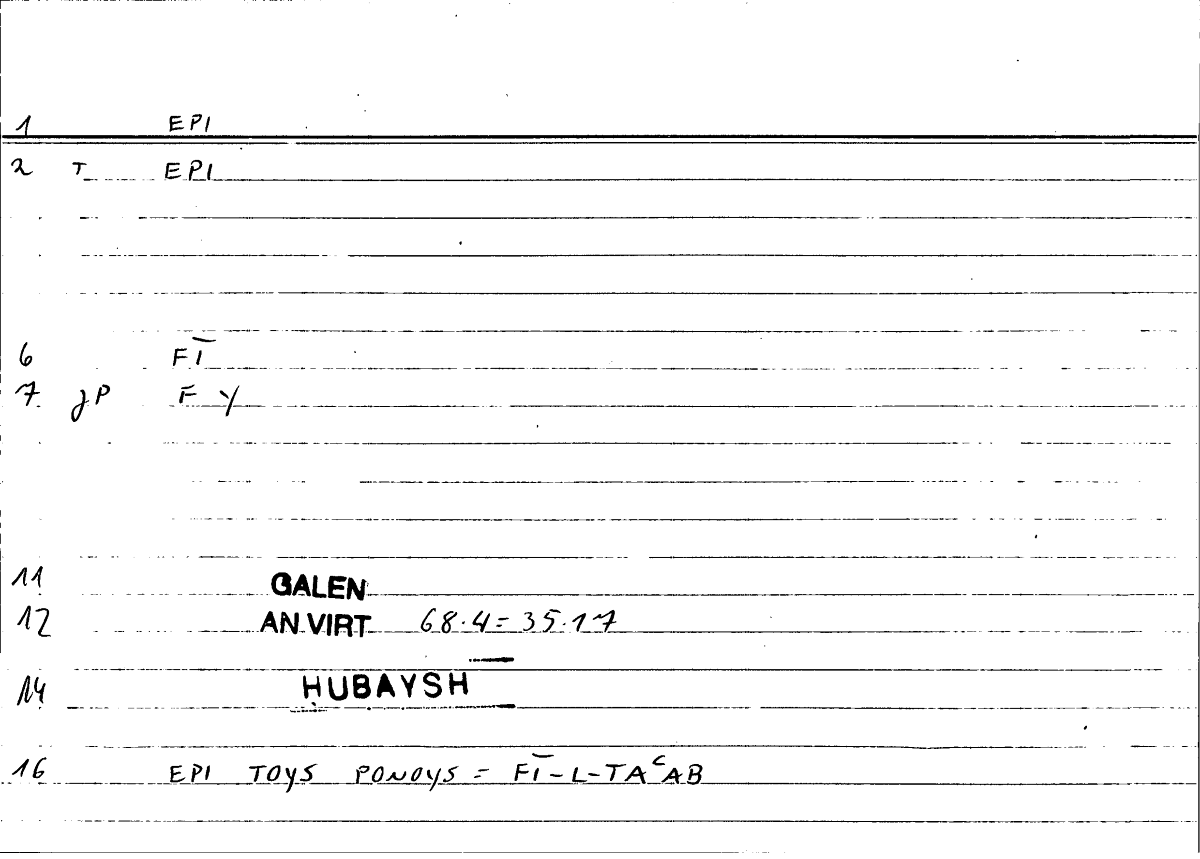 1 EPI
2 T EPI
6 FĪ
7 JP F Y
11 GALEN
12 AN.VIRT 68.4=35.17
14 ḤUBAYSH
16 EPI TOYS PONOYS = FĪ-L-TAᶜAB